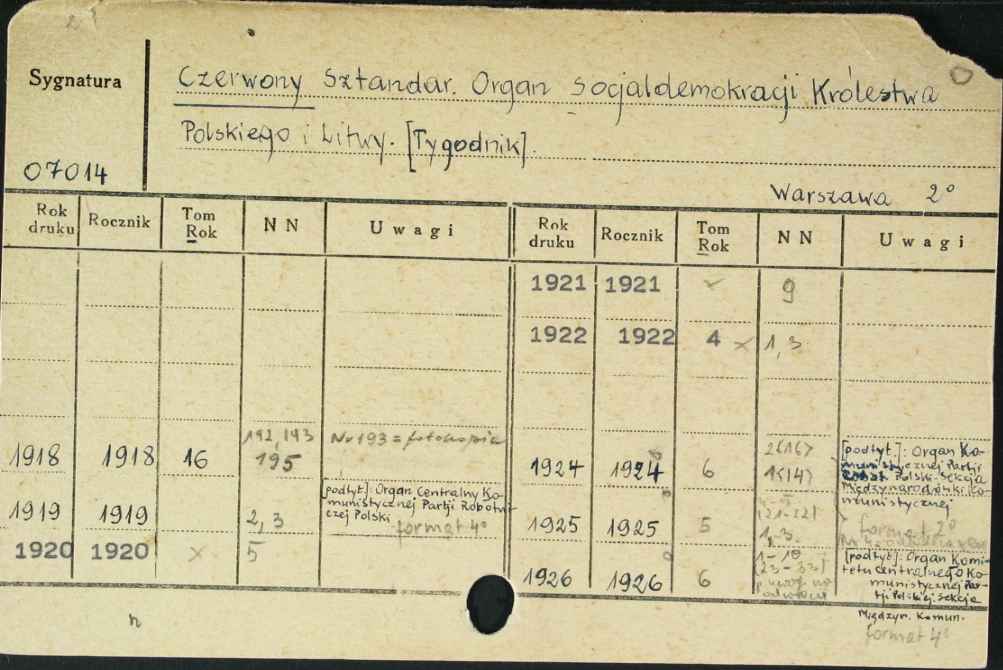 Sygnatura
Czerwony Sztandar. Organ Socjaldemokracji Królestwa
Polskiego i Litwy. [Tygodnik].
07014
Warszawa 2°
Rok druku Rocznik Tom Rok NN Uwagi Rok druku Rocznik Tom Rok NN Uwagi
1921 1921 9
1922 1922 4 x 1, 3
192, 193 Nr 193 = fotokopia
1918 1918 16 195
[podtyt]: Organ Centralny Ko-
munistycznej Partji Robotni-
czej Polski
1919 1919 2, 3 format 4°
1920 1920 x 5
1924 1924 6 2(16) 1(14)
[podtyt.]: Organ Ko-
munistycznej Partji
Polski Sekcja
Międzynarodówki Ko-
munistycznej
format 2°
1925 1925 5 1, 3.
1926 1926 6 1-10
[podtyt]: Organ Komi-
tetu Centralnego Ko-
munistycznej Par-
tji Polskiej Sekcja
Międzyn. Komun.
format 4°
n